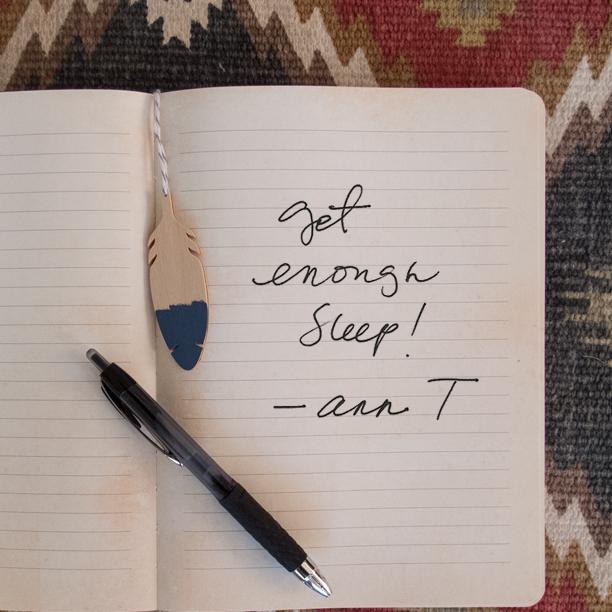 get
enough
Sleep!
— ann T